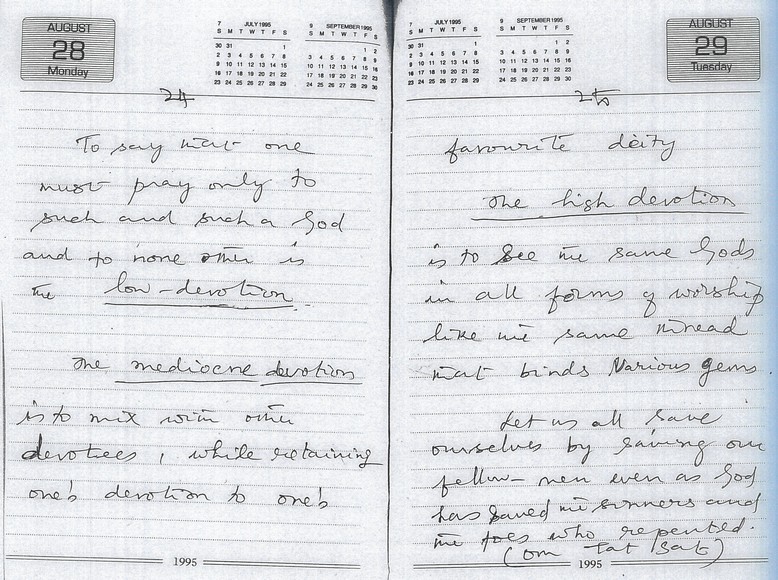 AUGUST
28
Monday
7 JULY 1995
S M T W T F S
30 31 1
2 3 4 5 6 7 8
9 10 11 12 13 14 15
16 17 18 19 20 21 22
23 24 25 26 27 28 29
9 SEPTEMBER 1995
S M T W T F S
1 2
3 4 5 6 7 8 9
10 11 12 13 14 15 16
17 18 19 20 21 22 23
24 25 26 27 28 29 30
24
To say that one
must pray only to
such and such a God
and to none other is
the low-devotion.
The mediocre devotion
is to mix with other
devotees, while retaining
one's devotion to one's
1995
7 JULY 1995
S M T W T F S
30 31 1
2 3 4 5 6 7 8
9 10 11 12 13 14 15
16 17 18 19 20 21 22
23 24 25 26 27 28 29
9 SEPTEMBER 1995
S M T W T F S
1 2
3 4 5 6 7 8 9
10 11 12 13 14 15 16
17 18 19 20 21 22 23
24 25 26 27 28 29 30
AUGUST
29
Tuesday
25
favourite deity
The high devotion
is to see the same Gods
in all forms of worship
like the same thread
that binds Various gems
Let us all save
ourselves by saving our
fellow-men even as God
has saved the sinners and
the foes who repented.
(Om Tat Sat)
1995